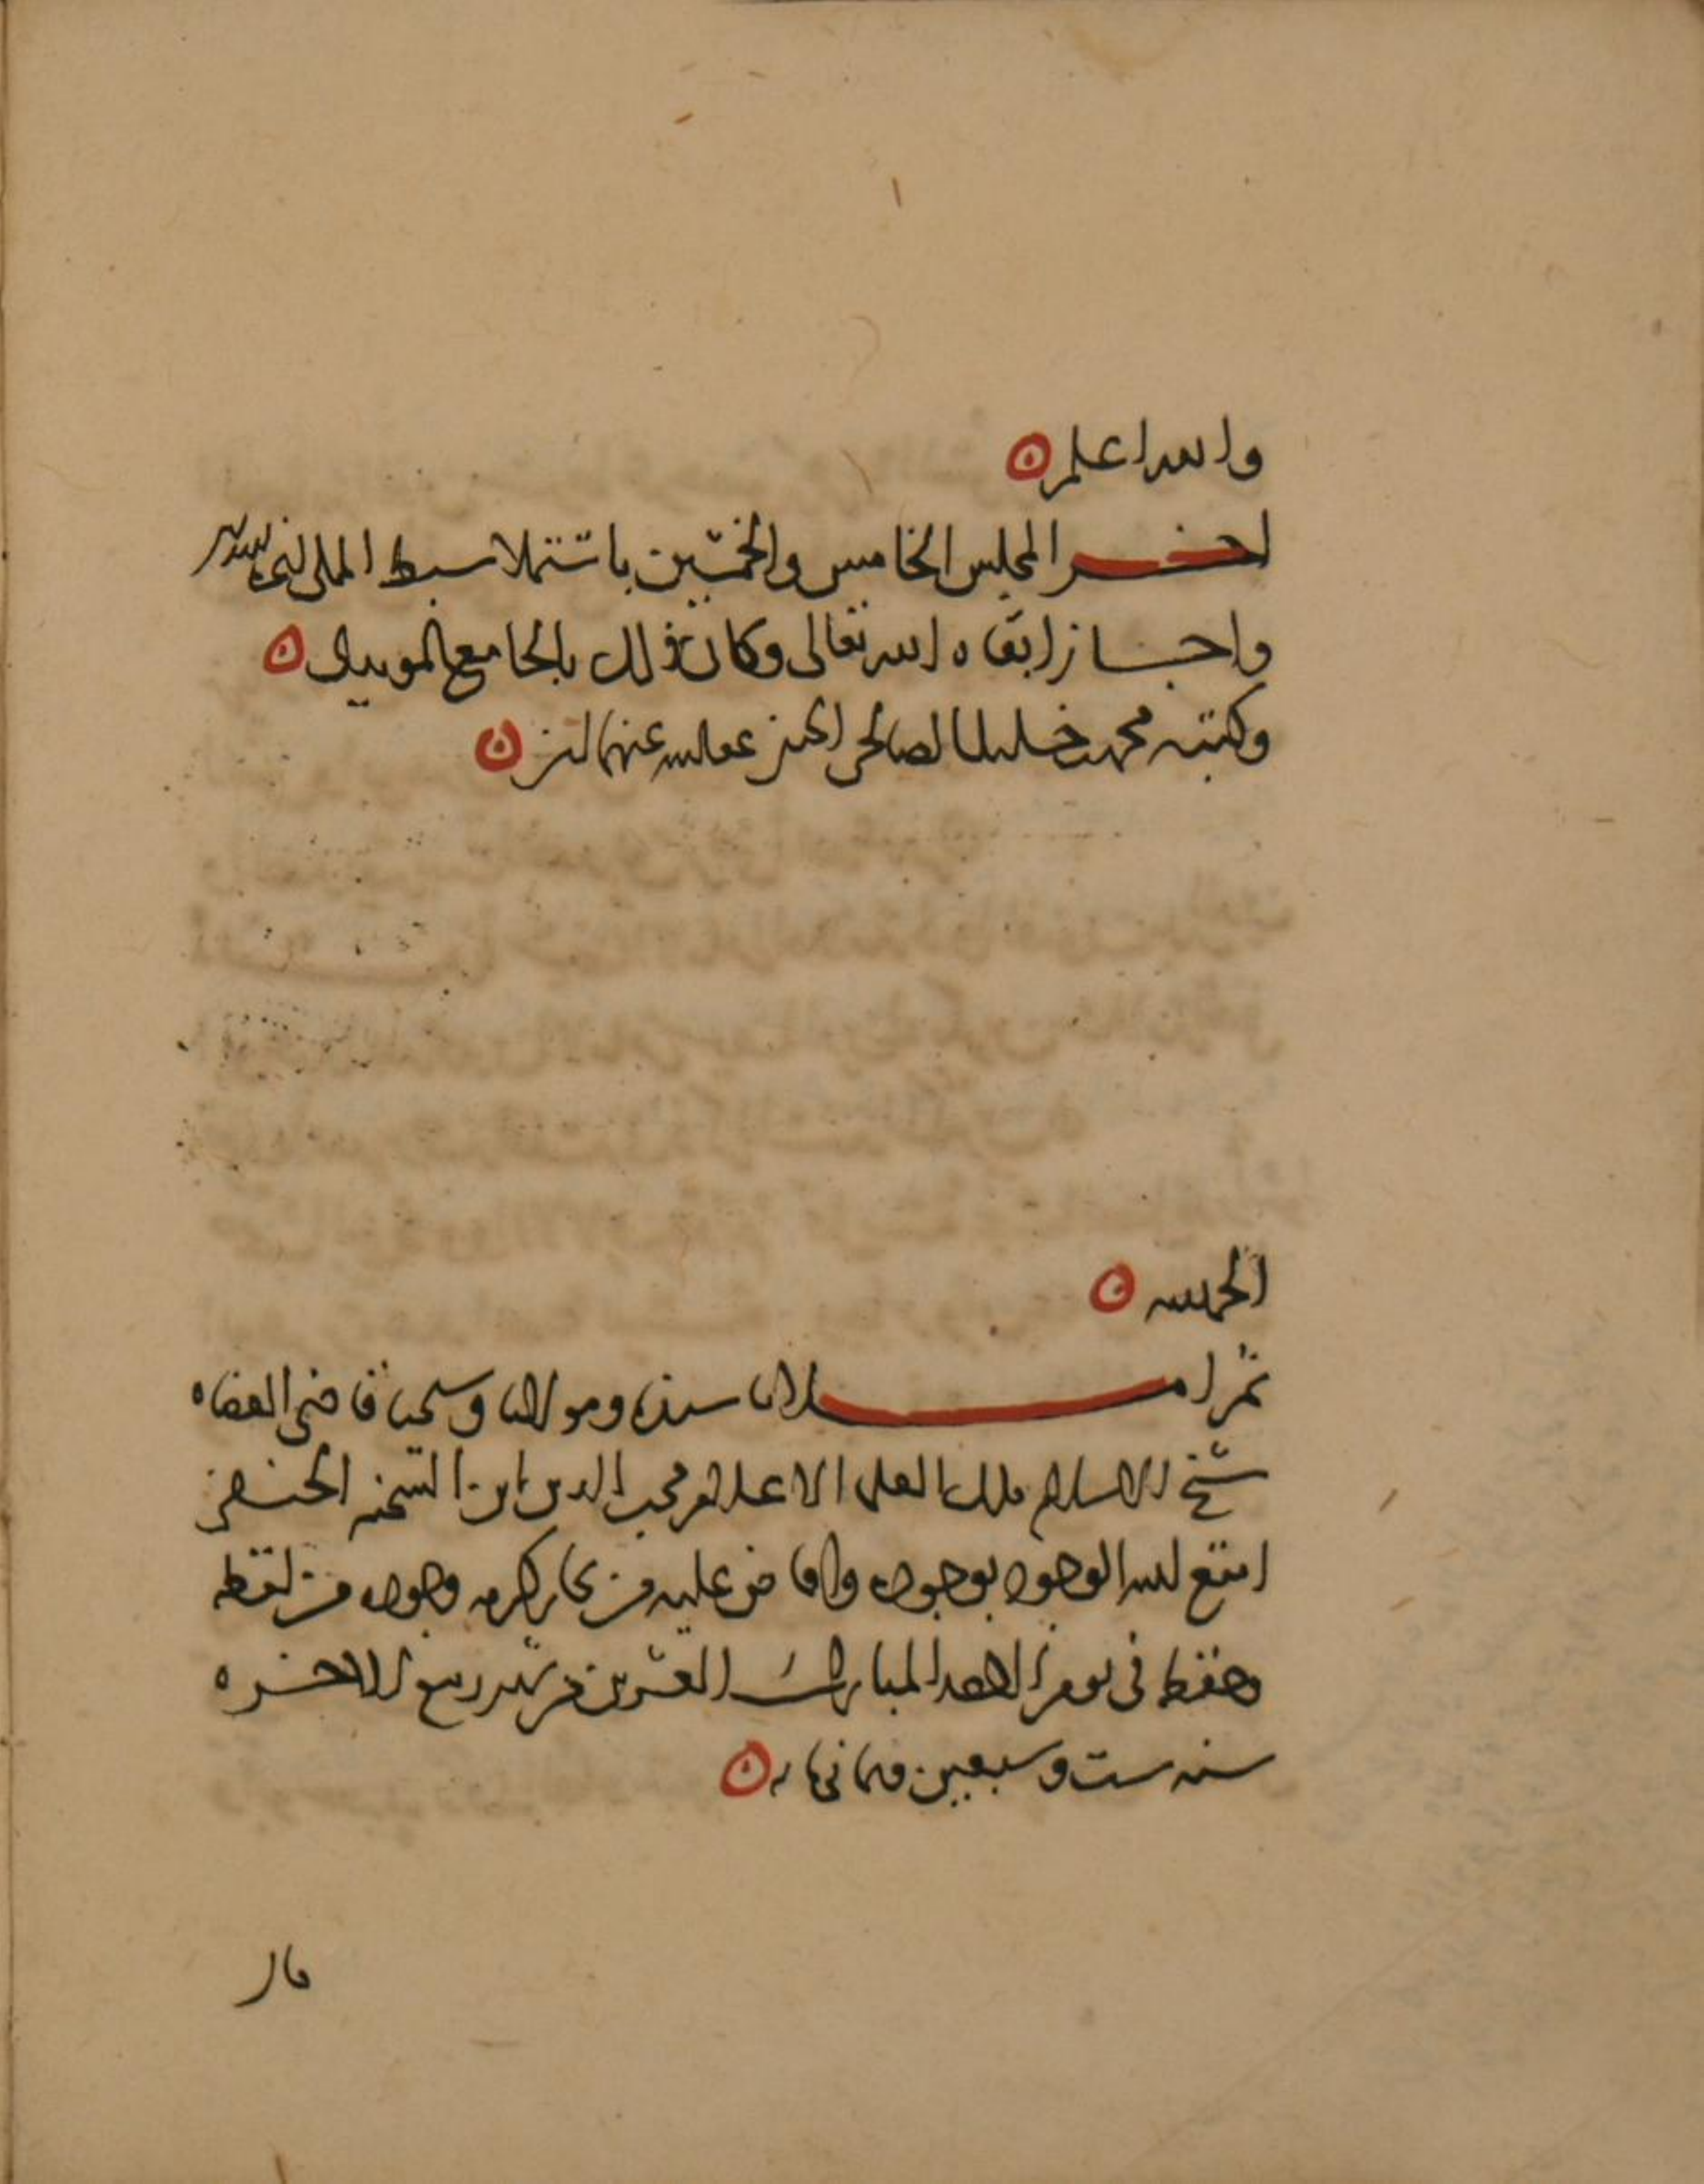 والله اعلم ه
اخر المجلس الخامس والخمسين باستملا سبط المملى
واجاز ابقاه الله تعالى وكان ذلك بالجامع المويدى ه
وكتبه محمد خليل الصالحى الحنفى عفا الله عنهما امين ه
الحمد لله ه
ثم املانا سيدنا ومولانا وشيخنا قاضى القضاه
شيخ الاسلام ملك العلما الاعلام محب الدين ابن الشحنه الحنفى
امتع الله الوجود بوجوده وافاض عليه من بحار كرمه وجوده من لفظه
وحفظه فى يوم الاحد المبارك العشرين من شهر ربيع الاخر ه
سنه ست وسبعين وثمانمايه ه
قال